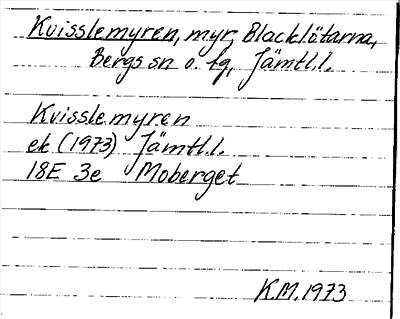 Kvisslemyren, myr, Blacklötarna,
Bergs sn o. tg, Jämtl.l.
Kvisslemyren
ek (1973) Jämtl.l.
18E 3e Moberget
K.M. 1973